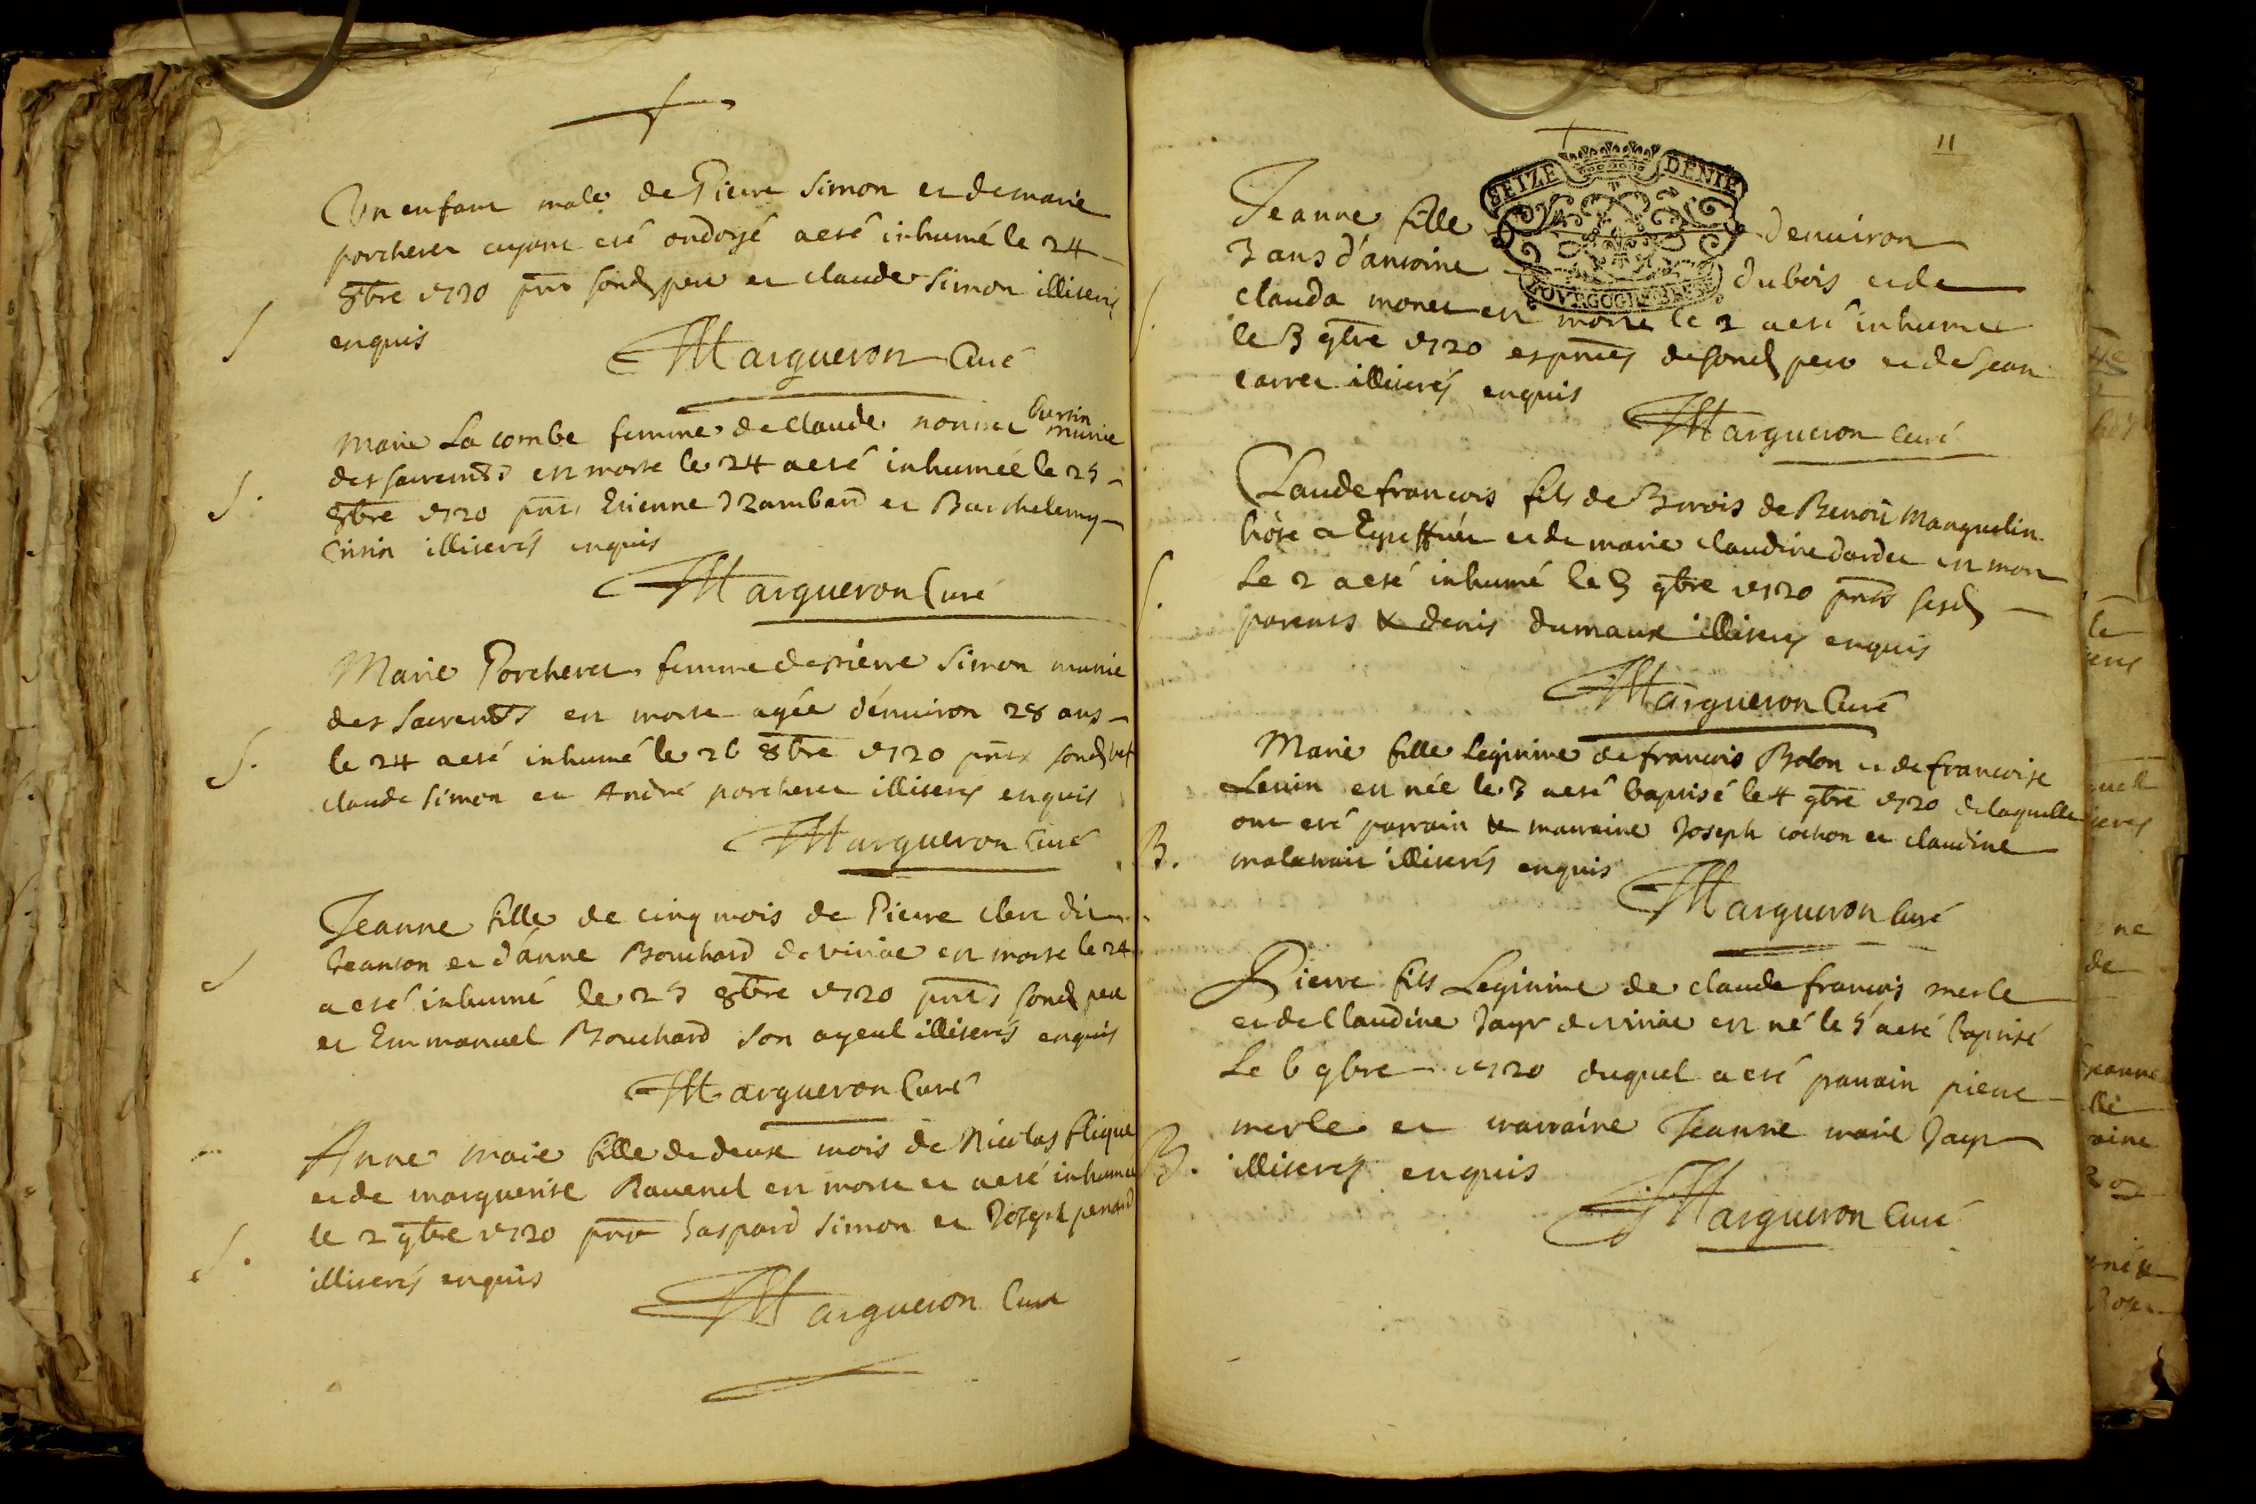 Un enfant male de Pierre Simon et de marie
porcheret ayant eté ondoyé a eté inhumé le 24
8bre 1720 pnts sond pere et claude Simon illiteres
enquis
S
Margueron Curé
Marie La combe femme de claude nonnet munie
des sacremts est morte le 24 a eté inhumée le 25
S.
8bre 1720 pnts Etienne et Barthelemy
illiterés enquis
Margueron Curé
Marie Porcheret femme de pierre Simon munie
des Sacremts est morte agée d'environ 28 ans
S.
le 24 a eté inhumé le 26 8bre 1720 pnts sond
claude Simon et André porcheret illiteres enquis
Margueron Curé
Jeanne fille de cinq mois de Pierre clerc dit
Jeanton et d'anne Bouchard de viriac est morte le 24
S
a eté inhumé le 25 8bre 1720 pnts sond pere
et Emmanuel Bouchard son ayeul illiterés enquis
Margueron Curé
Anne marie fille de deux mois de Nicolas flique
et de marguerite Ravenel est morte et a eté inhumée
le 2 9bre 1720 pnts Gaspard Simon et Joseph penard
S.
illiterés enquis
Margueron Curé
11
SEIZE DENIE
BOURGOGNE BRESSE
Jeanne fille d'environ
3 ans d'antoine dubois et de
clauda monet est morte le 2 a eté inhumee
le 3 9bre 1720 es pnces de sond pere et de Jean
carret illiterés enquis
Margueron curé
Claude francois fils de 3 mois de Benoit Manguelin
hôte a et de marie claudine dardet est mort
Le 2 a eté inhumé le 3 9bre 1720 pnts sesd
S.
parents & denis dumaux illiteres enquis
Margueron Curé
Marie fille Legitime de francois Bolon et de francoise
Levin est née le 3 a eté baptisé le 4 9bre 1720 de laquelle
ont eté parrain & marraine Joseph cochon et claudine
B.
illiterés enquis
Margueron Curé
Pierre fils Legitime de claude francois merle
et de Claudine Jayr de viriac est né le 5 a eté baptisé
Le 6 9bre 1720 duquel a eté parrain pierre
merle et marraine Jeanne marie Jayr
B.
illiteres enquis
Margueron Curé